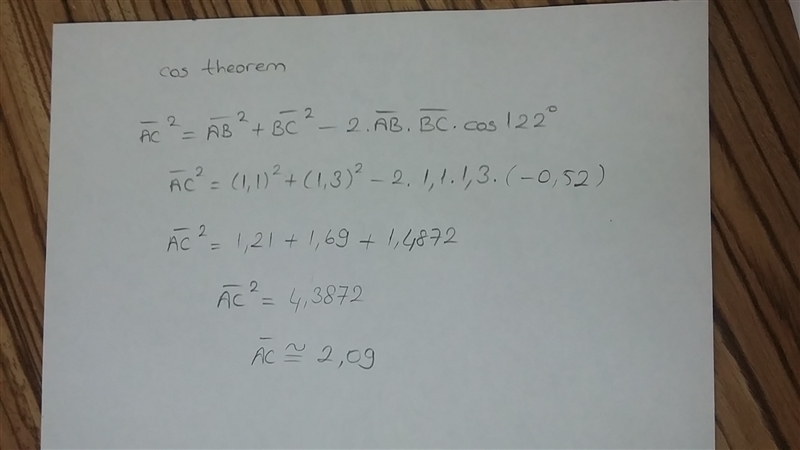 cos theorem
A̅C̅² = A̅B̅² + B̅C̅² − 2 . A̅B̅ . B̅C̅ . cos 122°
A̅C̅² = (1,1)² + (1,3)² − 2 . 1,1 . 1,3 . (−0,52)
A̅C̅² = 1,21 + 1,69 + 1,4872
A̅C̅² = 4,3872
A̅C̅ ≅ 2,09